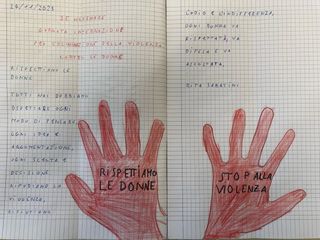 24/11/2023
25 NOVEMBRE
GIORNATA INTERNAZIONALE
PER L'ELIMINAZIONE DELLA VIOLENZA
CONTRO LE DONNE
RISPETTIAMO LE
DONNE
TUTTI NOI DOBBIAMO
RISPETTARE OGNI
MODO DI PENSARE,
OGNI IDEA E
ARGOMENTAZIONE,
OGNI SCELTA E
DECISIONE.
RIFIUDIAMO LA
VIOLENZA,
RIFIUTIAMO
RISPETTIAMO
LE DONNE
L'ODIO E L'INDIFFERENZA,
OGNI DONNA VA
RISPETTATA, VA
DIFESA E VA
ASCOLTATA.
RITA SABATINI
STOP ALLA
VIOLENZA